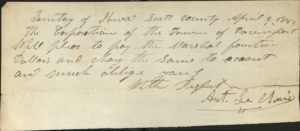 Territory of Iowa Scott County April 9, 1843
the Corporation of the Town of Davenport
Will please to pay the Marshal fourteen
Dollars and charg the same to account
and much oblige yours
With Respect
Ant. Le Claire